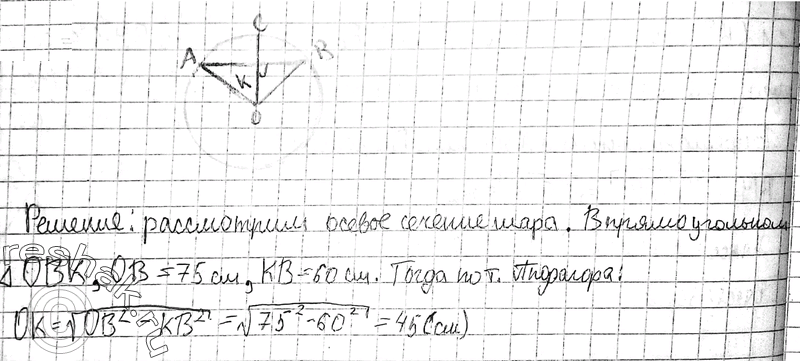 C
A B
K
O
Решение: рассмотрим осевое сечение шара. В прямоугольном
Δ OBK, OB = 75 см, KB = 60 см. Тогда по т. Пифагора:
OK = √OB² - KB² = √75² - 60² = 45 (см)